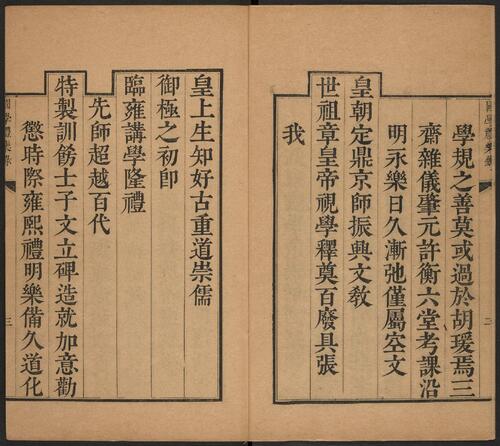 學規之善莫或過於胡瑗焉三
齋雜儀肇元許衡六堂考課沿
明永樂日久漸弛僅屬空文
皇朝定鼎京師振興文敎
世祖章皇帝視學釋奠百廢具張
我
皇上生知好古重道崇儒
御極之初卽
臨雍講學隆禮
先師超越百代
特製訓飭士子文立碑造就加意勸
懲時際雍熙禮明樂備久道化
三